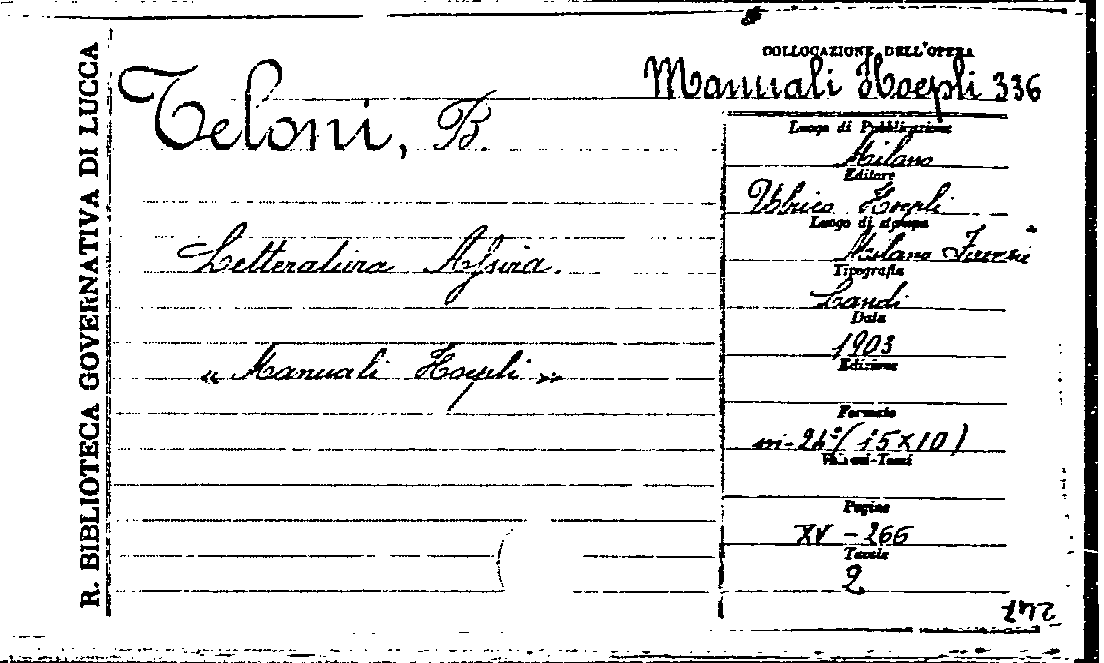 R. BIBLIOTECA GOVERNATIVA DI LUCCA
Teloni, B.
Letteratura Assira.
« Manuali Hoepli »
COLLOCAZIONE DELL'OPERA
Manuali Hoepli 336
Luogo di Pubblicazione
Milano
Editore
Ulrico Hoepli
Luogo di stampa
Milano Firenze
Tipografia
Landi
Data
1903
Edizione
Formato
in-24° (15X10)
Volumi-Tomi
Pagine
XV - 266
Tavole
2
247